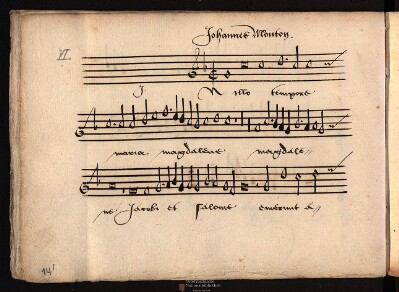 Johannes Mouton.
VI.
I N illo tempore
maria magdalene magdale
ne Jacobi et Salome emerunt a